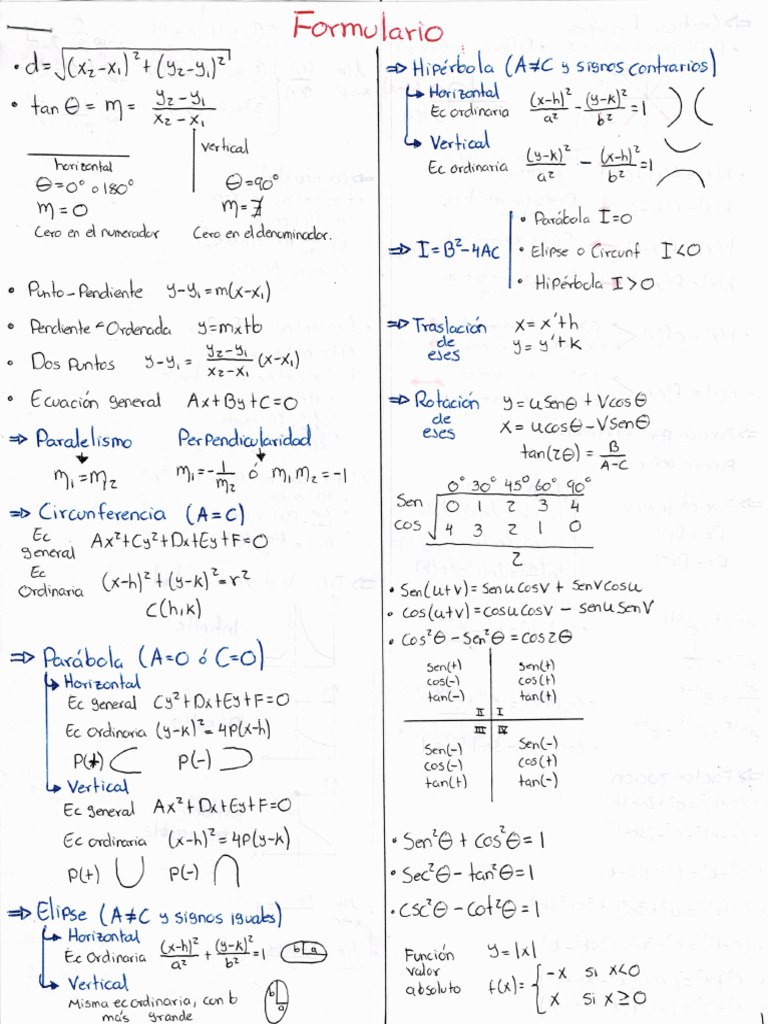 Formulario
• d=√(x₂-x₁)²+(y₂-y₁)²
• tan θ = m = (y₂-y₁)/(x₂-x₁)
horizontal
θ=0° o 180°
m=0
Cero en el numerador
vertical
θ=90°
m=∄
Cero en el denominador.
• Punto-Pendiente y-y₁=m(x-x₁)
• Pendiente-Ordenada y=mx+b
• Dos Puntos y-y₁= (y₂-y₁)/(x₂-x₁) (x-x₁)
• Ecuación general Ax+By+C=0
⇒ Paralelismo Perpendicularidad
m₁=m₂ m₁=-1/m₂ ó m₁m₂=-1
⇒ Circunferencia (A=C)
Ec general Ax²+Cy²+Dx+Ey+F=0
Ec Ordinaria (x-h)²+(y-k)²=r²
C(h,k)
⇒ Parábola (A=0 ó C=0)
↳ Horizontal
Ec general Cy²+Dx+Ey+F=0
Ec Ordinaria (y-k)²=4p(x-h)
P(+) P(-)
↳ Vertical
Ec general Ax²+Dx+Ey+F=0
Ec ordinaria (x-h)²=4p(y-k)
P(+) P(-)
⇒ Elipse (A≠C y signos iguales)
↳ Horizontal
Ec Ordinaria (x-h)²/a² + (y-k)²/b² =1 b a
↳ Vertical
Misma ec ordinaria, con b
más grande
b
a
⇒ Hipérbola (A≠C y signos contrarios)
↳ Horizontal
Ec ordinaria (x-h)²/a² - (y-k)²/b² =1
↳ Vertical
Ec ordinaria (y-k)²/a² - (x-h)²/b² =1
⇒ I=B²-4AC
• Parábola I=0
• Elipse o Circunf I<0
• Hipérbola I>0
⇒ Traslación de ejes
x=x'+h
y=y'+k
⇒ Rotación de ejes
y=usenθ+vcosθ
x=ucosθ-vsenθ
tan(2θ)= B/(A-C)
0° 30° 45° 60° 90°
Sen √ 0 1 2 3 4
cos 4 3 2 1 0
2
• Sen(u+v)=senucosv+senvcosu
• cos(u+v)=cosucosv-senusenv
• cos²θ-sen²θ=cos2θ
sen(+) sen(+)
cos(-) cos(+)
tan(-) tan(+)
II I
III IV
Sen(-) Sen(-)
cos(-) cos(+)
tan(+) tan(-)
• Sen²θ+cos²θ=1
• Sec²θ-tan²θ=1
• csc²θ-cot²θ=1
Función valor absoluto
y=|x|
f(x)= { -x si x<0
x si x≥0